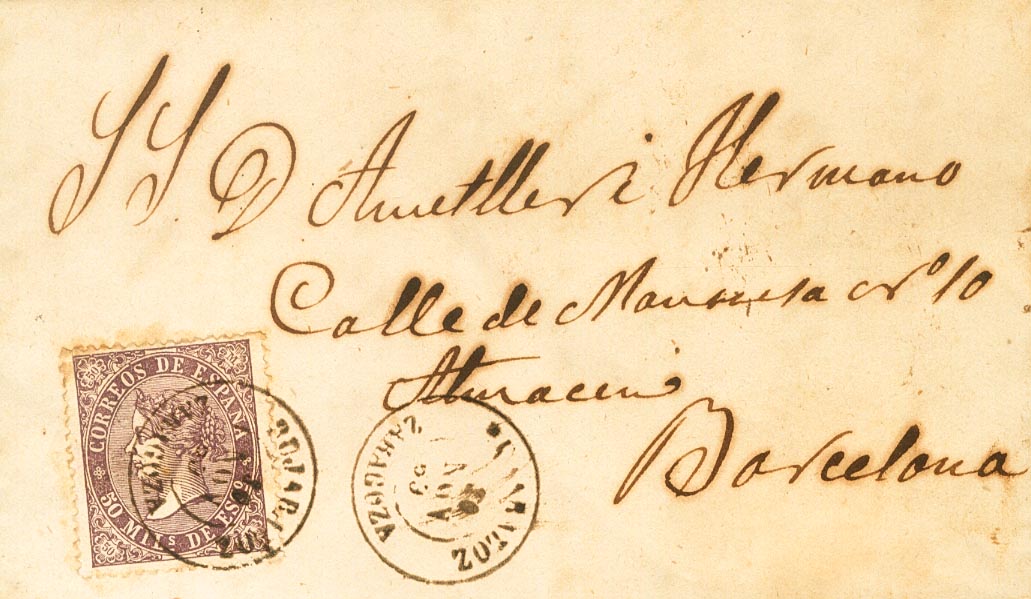 S S D Ametller i Hermano
Calle de Manresa nº 10
Almacen
Barcelona
CORREOS DE ESPAÑA
50 MILS DE ESCO
50
ZARAGOZA
NOV
ZARAGOZA
NOV